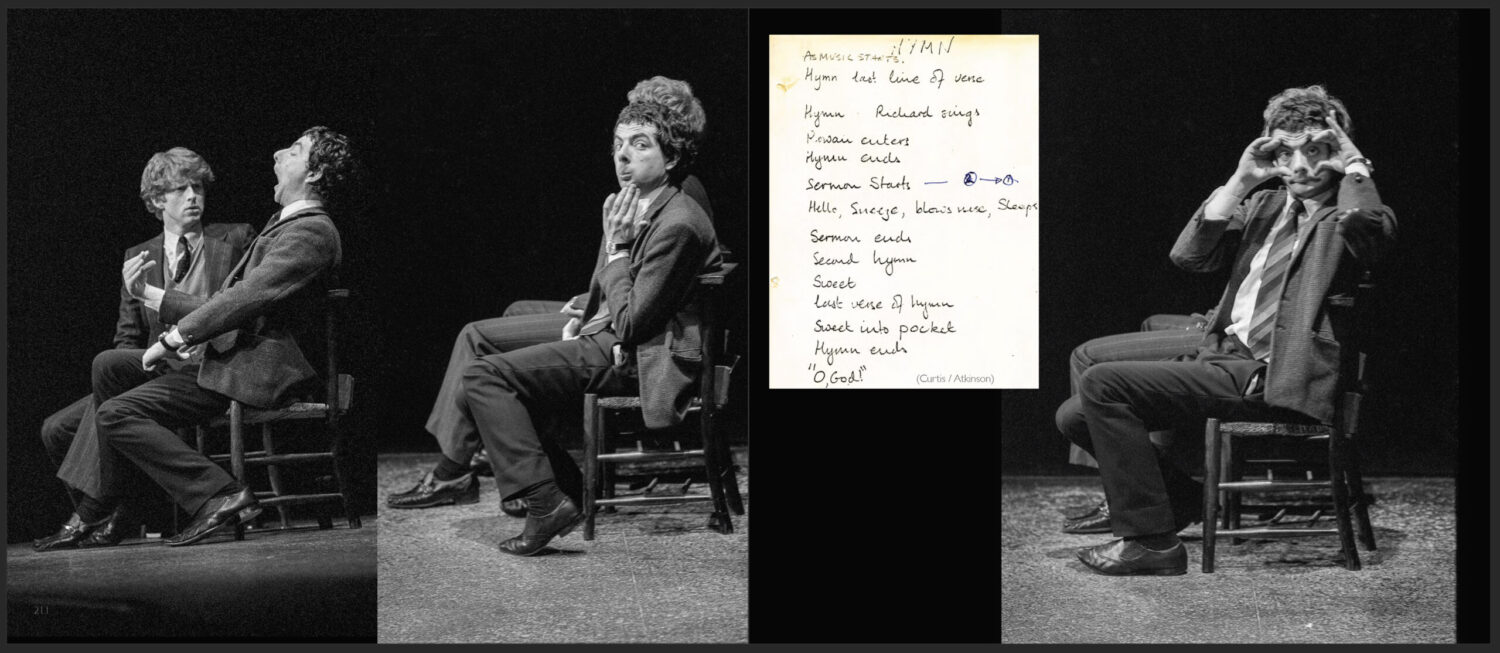 HYMN
AS MUSIC STARTS.
Hymn last line of verse
Hymn . Richard sings
Rowan enters
Hymn ends
Sermon Starts — 2 → 1
Hello, Sneeze, blows nose, Sleeps
Sermon ends
Second hymn
Sweet
last verse of hymn
Sweet into pocket
Hymn ends
"O, God!"
(Curtis / Atkinson)
211